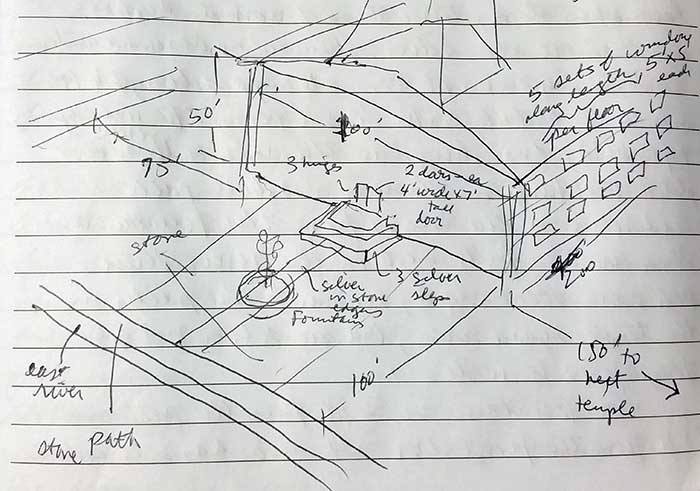 5 sets of windows
along length, 5x5
each
per floor
50'
100'
75'
3 hinges
2 doors-ea
4' wide x 7'
tall
door
stone
silver
in stone
edges
Fountain
3 silver
steps
200
east
river
stone path
100'
150' to
next
temple